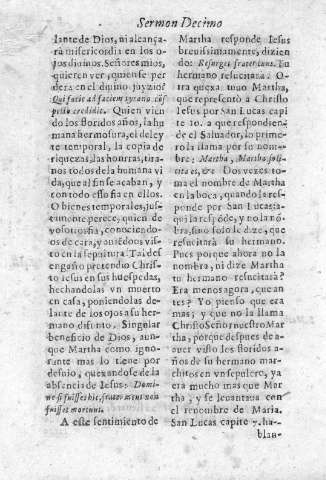 Sermon Decimo
lante de Dios, ni alcança-
rà misericordia en los o-
jos diuinos. Señores mios,
quieren ver, quiense per
dera en el diuino juyzio?
Qui facie ad faciem tyrano cos
prîso credidit. Quien vien
do los floridos años, la hu
mana hermosura, el deley
te temporal, la copia de
riquezas, las honrras, tira-
nos todos dela humana vi
da, que al fin se acaban, y
con todo esso fia en ellos.
O bienes temporales, jus-
tamente perece, quien de
vosotros fia, conociendo-
os de cara, y auiedoos vis-
to en la sepultura. Tal des
engaño pretendio Chris-
to Iesus en sus huespedas,
hechandolas vn muerto
en casa, poniendolas de-
lante de los ojos a su her-
mano difunto. Singular
beneficio de Dios, aun-
que Martha como igno-
rante mas lo tiene por
desuio, quexandose de la
absencia de Iesus: Domi-
ne si fuisses hic, frater meus non
fuisset mortuus.
A este sentimiento de
Martha responde Iesus
breuissimamente, dizien
do: Resurget frater tuus. Tu
hermano resucitarà? O-
tra quexa tuuo Martha,
que representò a Christo
Iesus por San Lucas capit
te 10. a que respondien-
do el Saluador, lo prime-
ro la llama por su nom-
bre: Martha, Martha soli-
cita es, &c Dos vezes to-
ma el nombre de Martha
en la boca, quando la res-
ponde por San Lucas: a-
qui la respõde, y no la nõ-
bra, sino solo le dize, que
resucitarà su hermano.
Pues porque ahora no la
nombra, ni dize Martha
tu hermano resucitarà?
Era menos agora, que an
tes? Yo pienso que era
mas; y que no la llama
Christo Señor nuestro Mar
tha, porque despues de a-
auer visto los floridos a-
ños de su hermano mar-
chitos en vn sepulcro, ya
era mucho mas que Mar
tha, y se leuantaua con
el renombre de Maria.
San Lucas capite 7. ha-
blan-